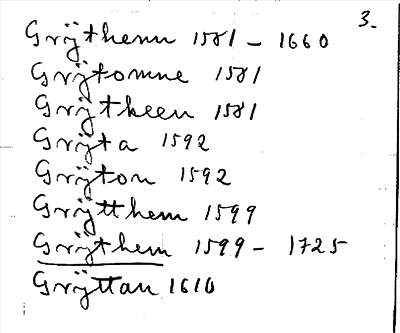 3.
Grÿthenn 1581 - 1660
Grÿtomne 1581
Grÿtheen 1581
Grÿta 1592
Grÿton 1592
Grÿtthem 1599
Grÿthem 1599 - 1725
Grÿttan 1610